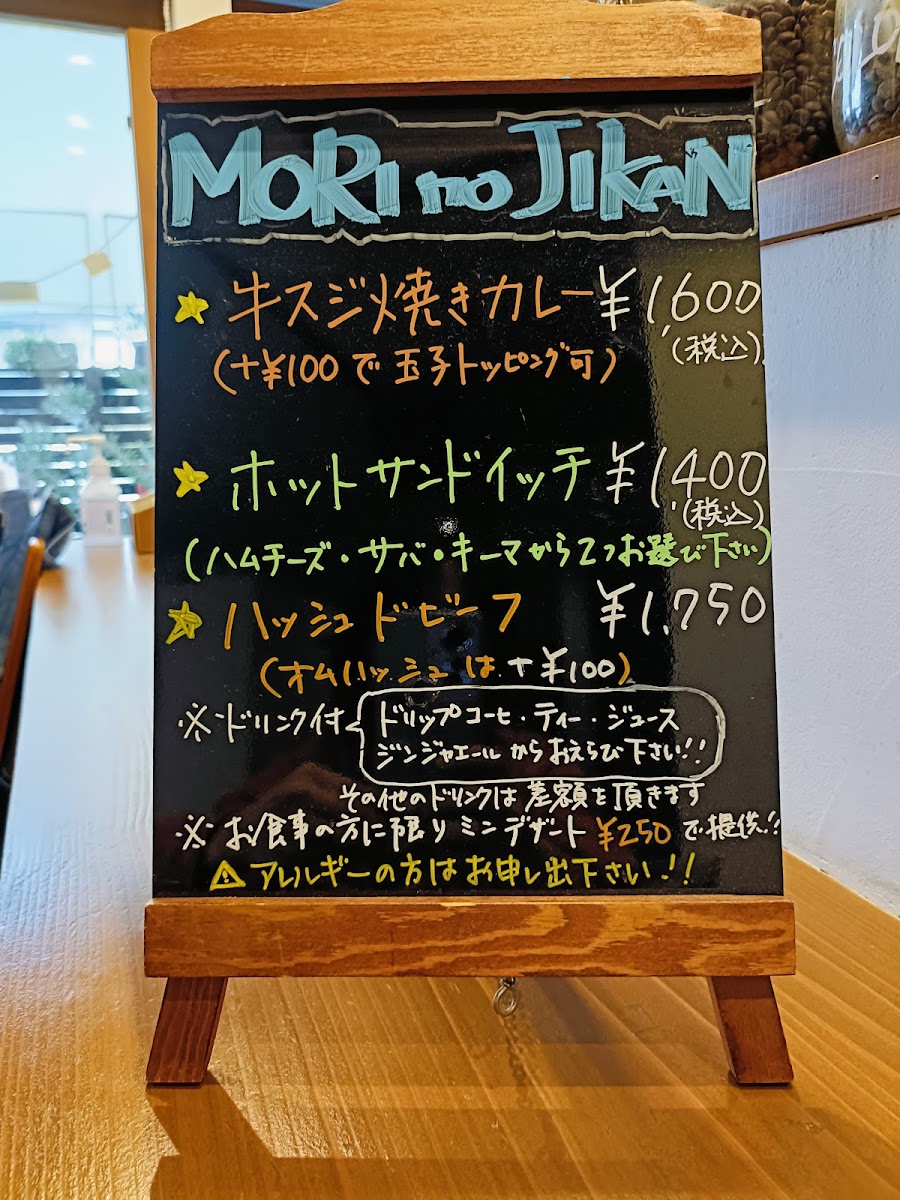 MORI no JIKAN
牛スジ焼きカレー ¥1,600
(税込)
(+¥100で玉子トッピング可)
ホットサンドイッチ ¥1,400
(税込)
(ハムチーズ・サバ・キーマから2つお選び下さい)
ハッシュドビーフ ¥1,750
(オムハッシュは+¥100)
※ドリンク付 ドリップコーヒ・ティー・ジュース
ジンジャエールからおえらび下さい!!
その他のドリンクは差額を頂きます
※お食事の方に限りミンデザート¥250で提供!!
⚠アレルギーの方はお申し出下さい!!